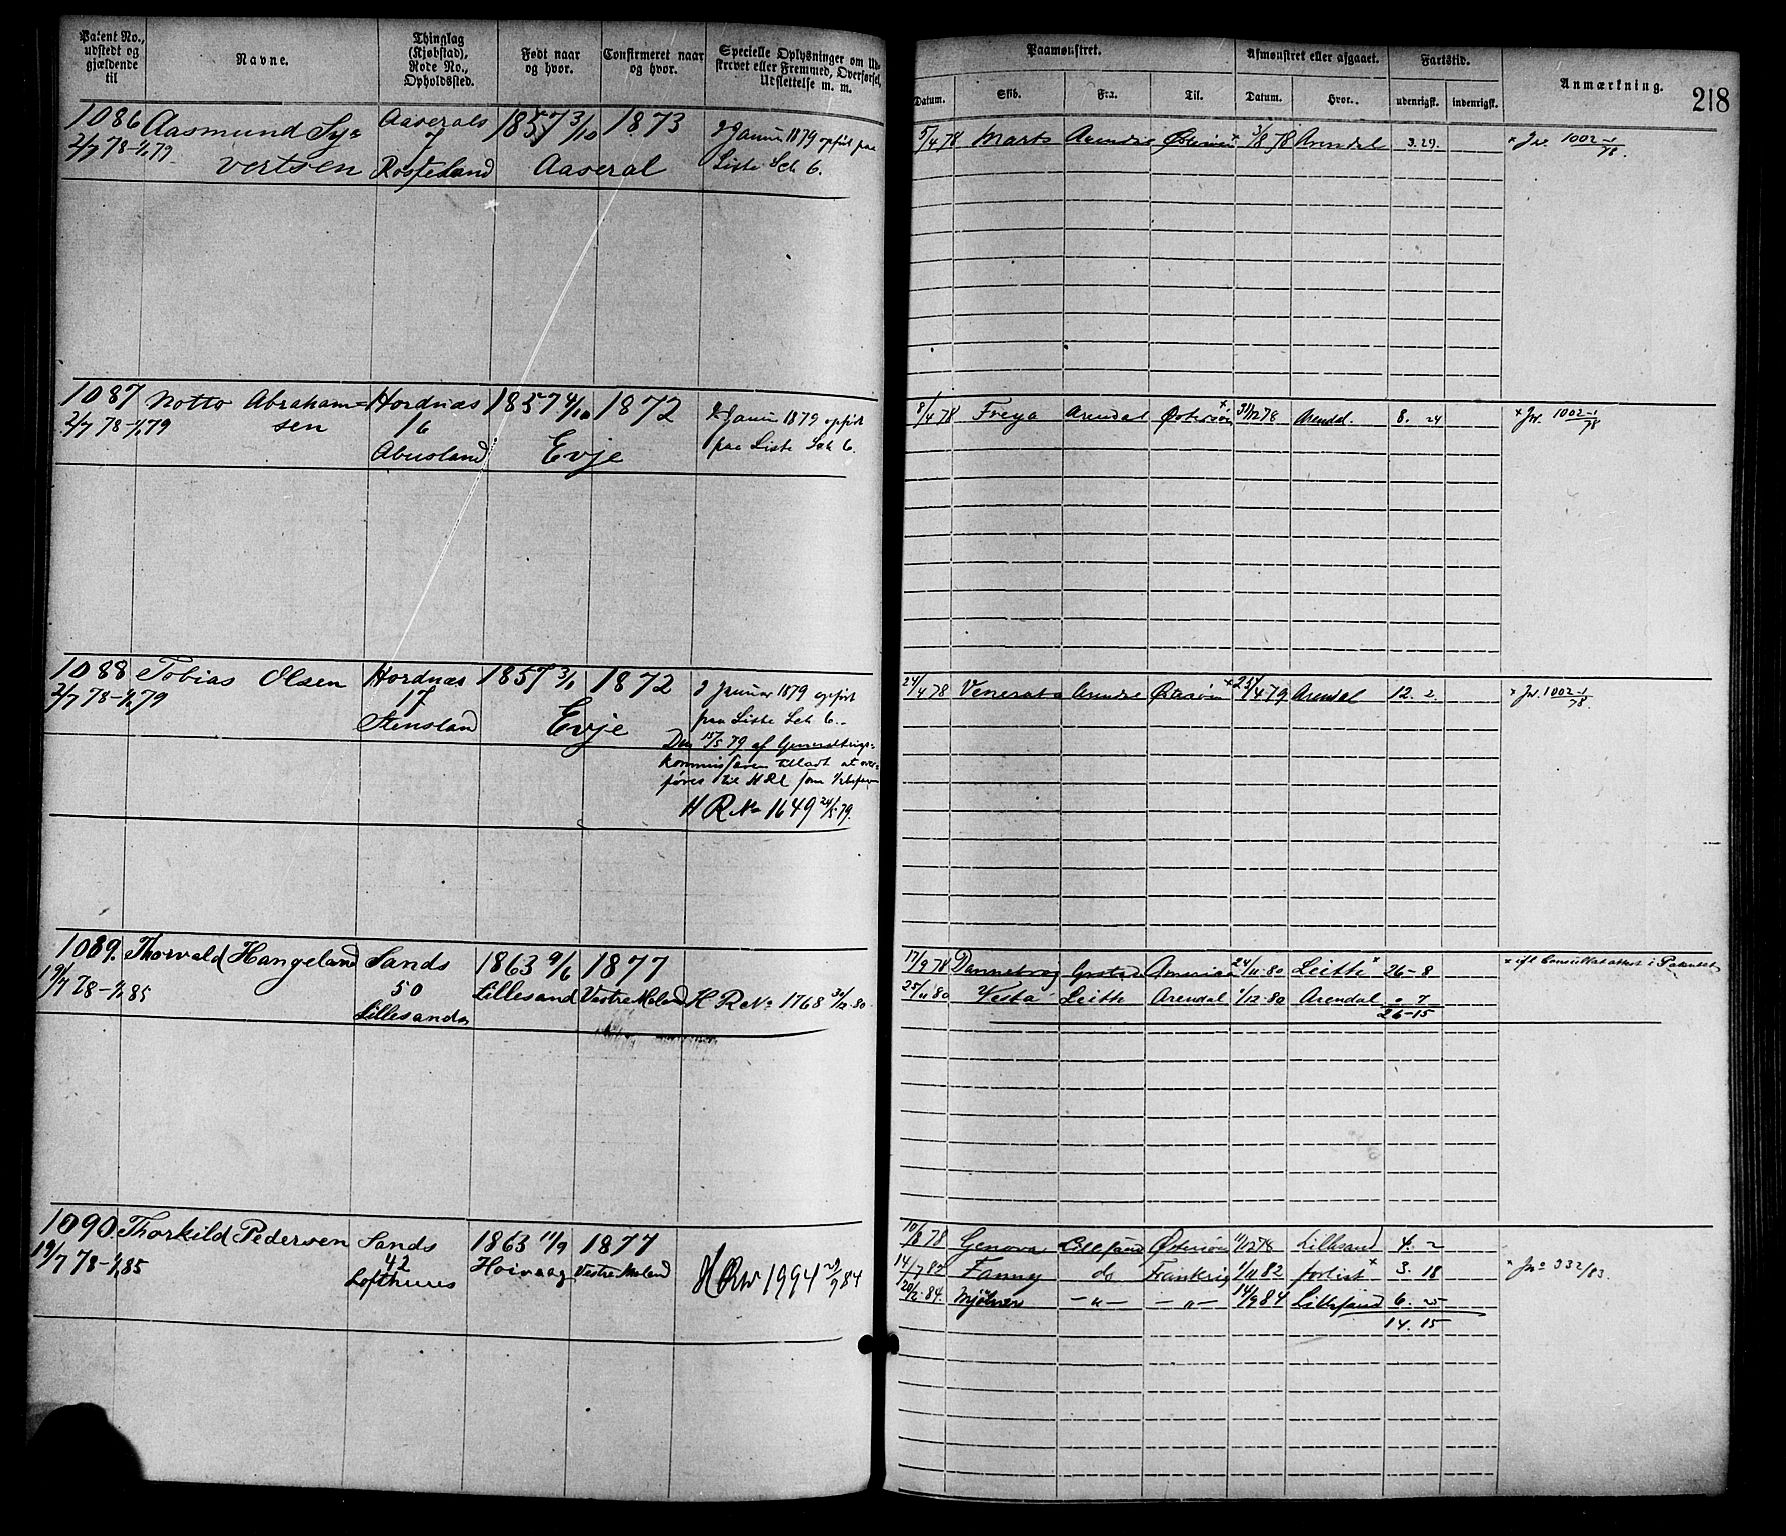 Patent No., udstedt og gjældende til
Navne.
Thinglag (Kjøbstad), Rode No., Opholdssted.
Født naar og hvor.
Confirmeret naar og hvor.
Specielle Oplysninger om Ud-
skrevet eller Fremmed, Overførsel,
Udslettelse m. m.
Paamønstret.
Afmønstret eller afgaaet.
Fartstid.
Anmærkning.
218
Datum. Skib. Fra. Til. Datum. Hvor. udenrigsk. indenrigsk.
1086 Aasmund Sy= Aaserals 1857 3/10 1873 2 Januar 1879 opført paa
2/7 78-1/1 79 vertsen 7 Rosseland Aaseral Liste Sch 6.
5/4 78 Marts Arendal Østersøen x 3/8 78 Arendal 3. 29. x Jr. 1002-1/78.
1087 Notto Abraham= Hordnæs 1857 4/10 1872 2 Januar 1879 opført
2/7 78-1/1 79 sen 16 paa Liste Sch 6.
Abusland Evje
8/4 78 Freya Arendal Østersøen x 31/12 78 Arendal. 8. 24 x Jr. 1002-1/78
1088 Tobias Olsen Hordnæs 1857 3/1 1872 2 Januar 1879 opført
2/7 78-1/1 79 17 paa Liste Sch 6.
Stensland Evje
Den 15/5 79 af Generalkrigs-
kommissæren tilladt at over-
føres til HRl som
H R No 1649 24/5 79.
24/4 78 Venerata Arendal Østersøen x 23/4 79 Arendal 12. 2. x Jr. 1002-1/78.
1089. Thorvald Hangeland Sands 1863 9/6 1877
19/7 78-1/1 85 50 Lillesand Vestre Moland H R No 1768 30/12 80.
Lillesand
17/9 78 Dannebrog Grstad Amerika 24/11 80 Leith x 26-8 x ifl Consulatattest i Patentet
25/11 80 Vesta Leith Arendal 1/12 80 Arendal " 7
26-15
1090. Thorkild Pedersen Sands 1863 11/9 1877
19/7 78-1/1 85 42 Høivaag Vestre Moland H R No 1994 29/9 84
Lofthuus
10/8 78 Genova Lillesand Østersøen 11/12 78 Lillesand 4. 2
14/7 82 Fanny do Frankrig 1/11 82 forlist x 3. 18 x Jno 332/83.
20/2 84. Mjølner -"- -"- 14/9 84 Lillesand 6. 25
14. 15